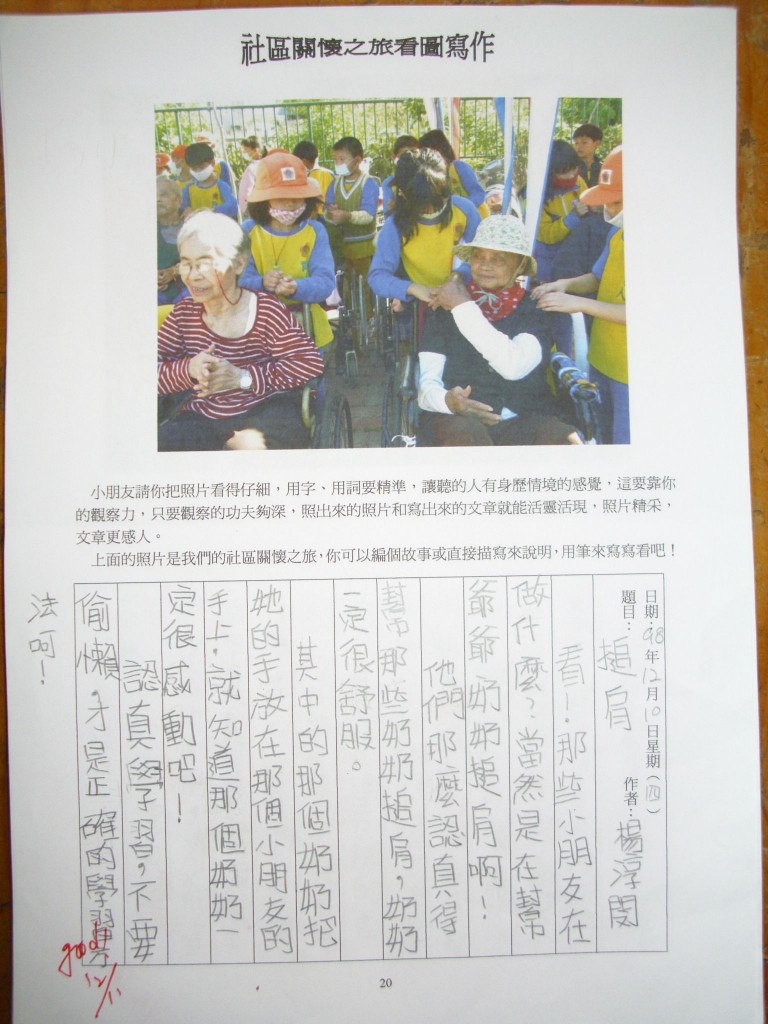 社區關懷之旅看圖寫作
小朋友請你把照片看得仔細，用字、用詞要精準，讓聽的人有身歷情境的感覺，這要靠你
的觀察力，只要觀察的功夫夠深，照出來的照片和寫出來的文章就能活靈活現，照片精采，
文章更感人。
上面的照片是我們的社區關懷之旅，你可以編個故事或直接描寫來說明，用筆來寫寫看吧！
日期：98年12月10日星期（四）
題目：搥肩 作者：楊淳閔
看！那些小朋友在
做什麼？當然是在幫
爺爺奶奶搥肩啊！
他們那麼認真得
幫那些奶奶搥肩，奶奶
一定很舒服。
其中的那個奶奶把
她的手放在那個小朋友的
手上，就知道那個奶奶一
定很感動吧！
認真學習，不要
偷懶，才是正確的學習方
法呵！
good!
12/11
20